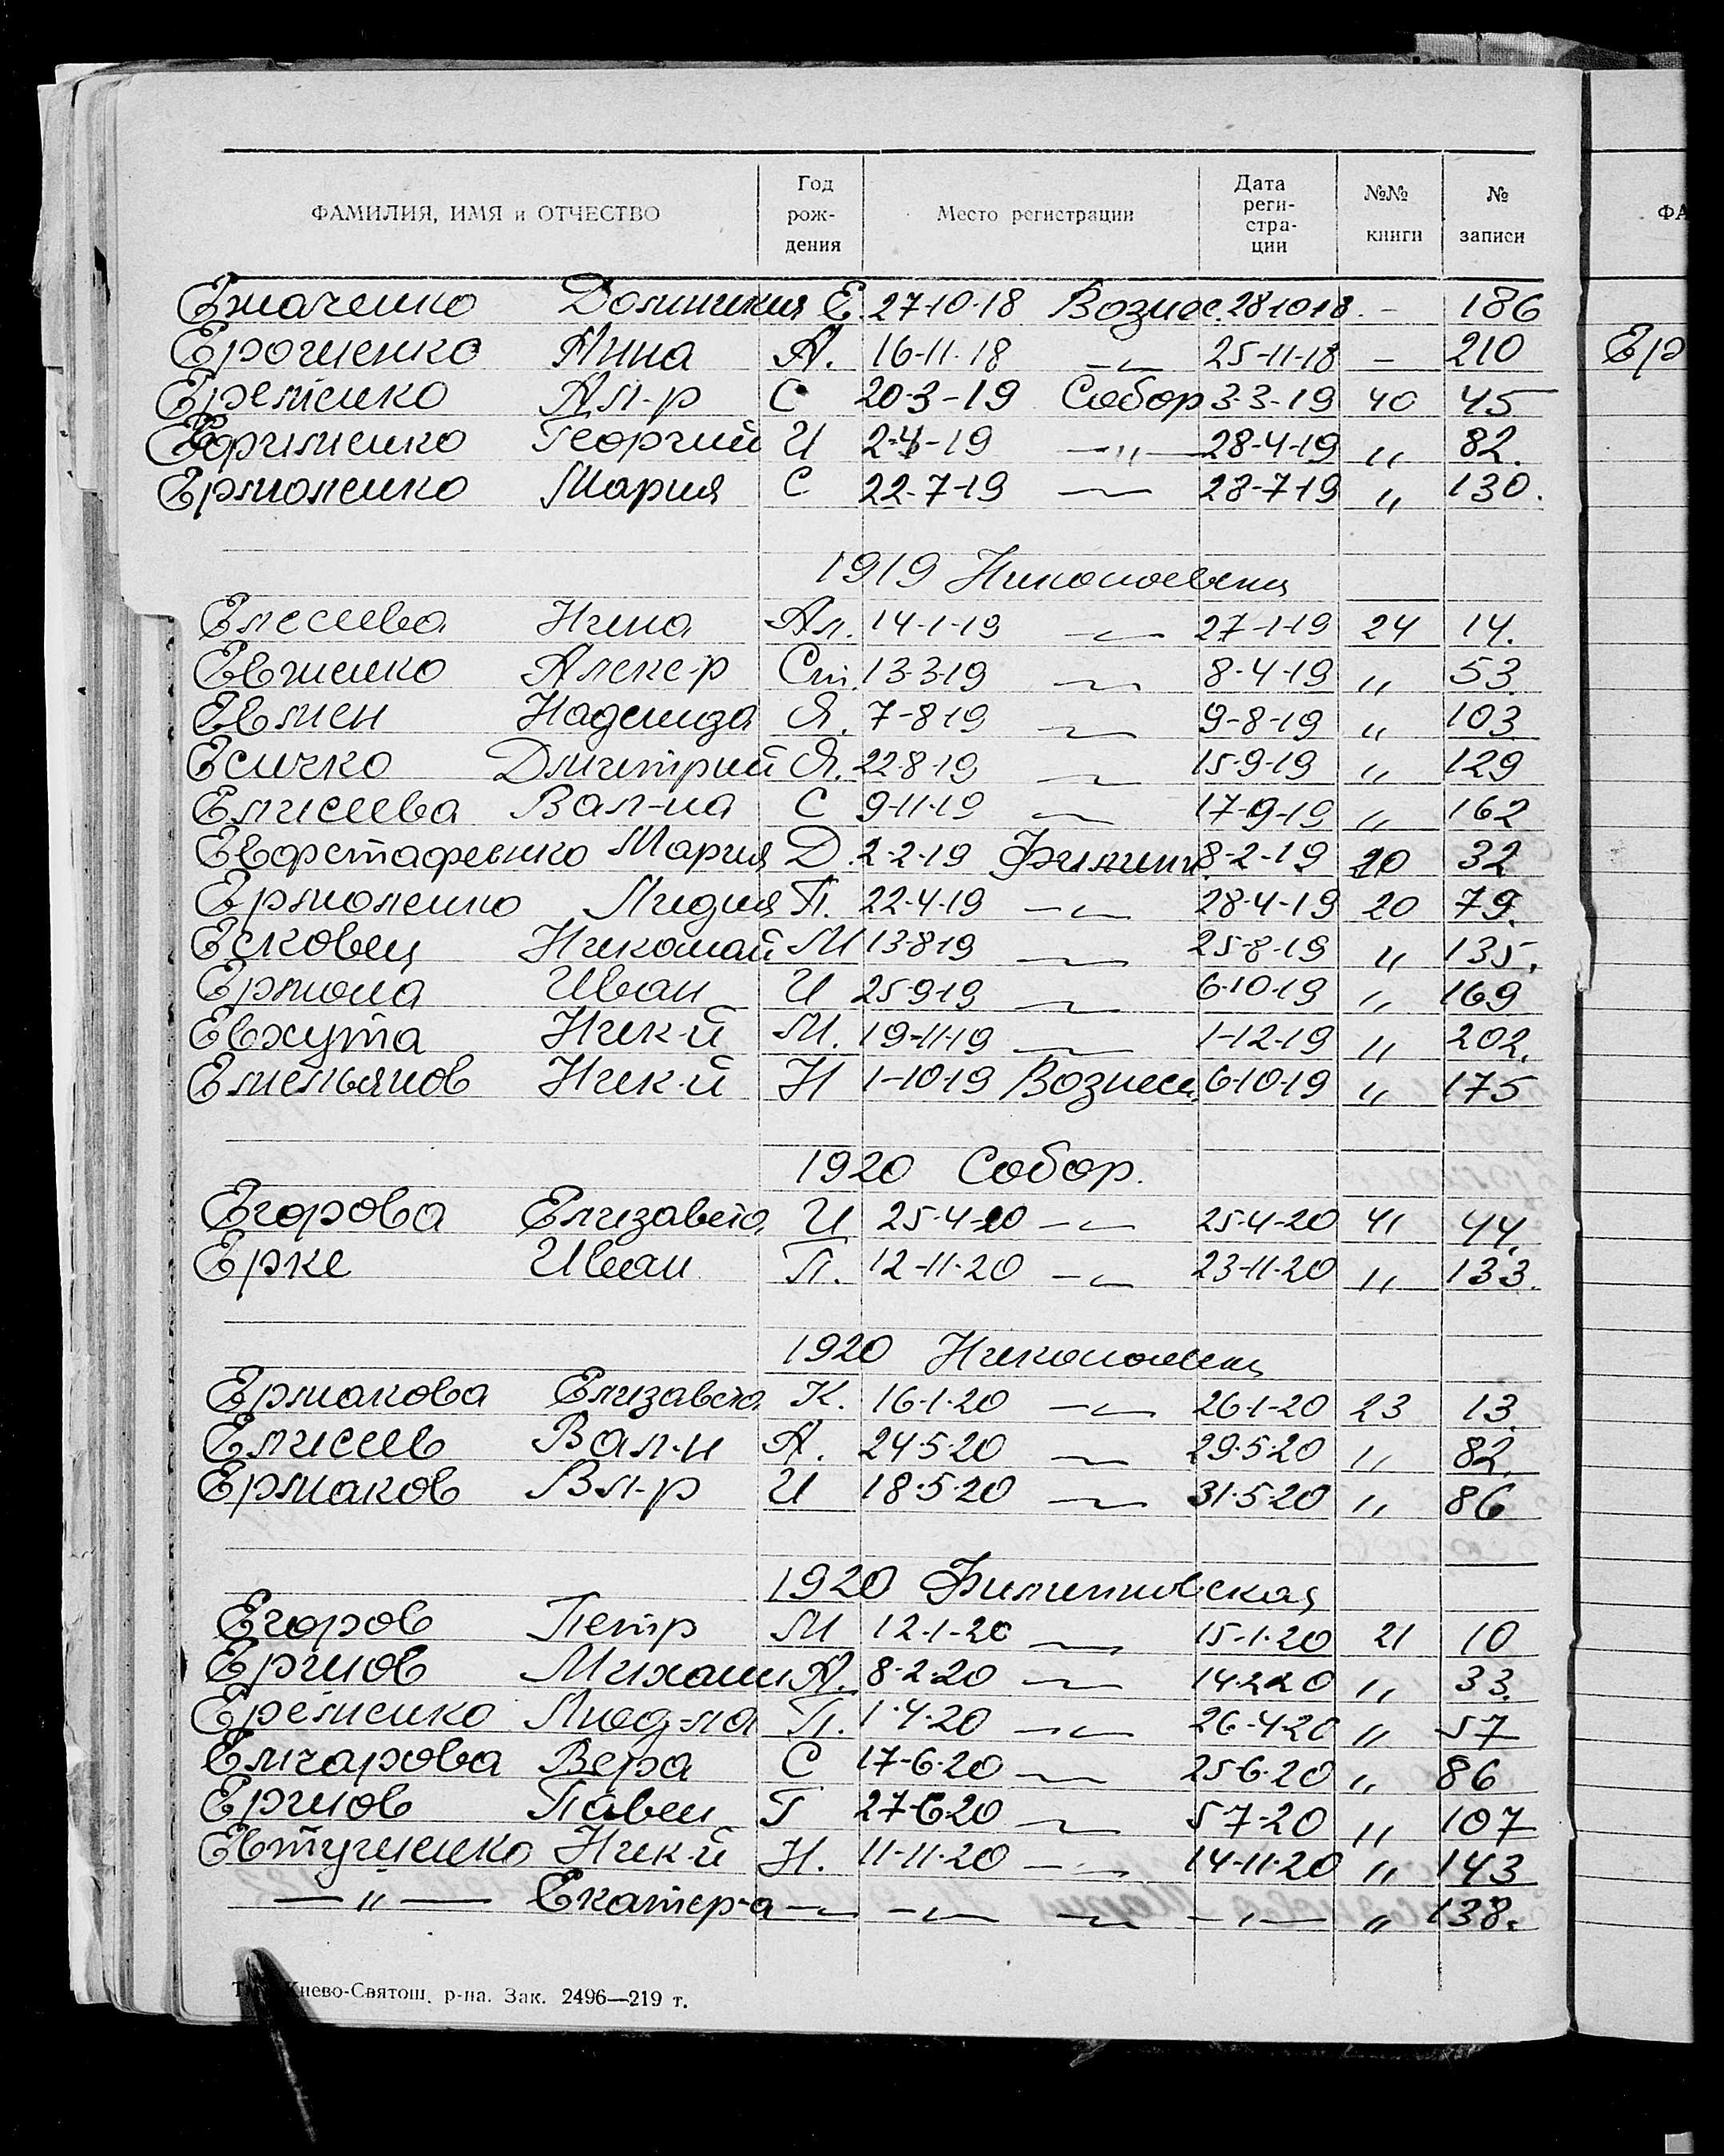 ФАМИЛИЯ, ИМЯ и ОТЧЕСТВО Год рождения Место регистрации Дата регистрации №№ книги № записи
ФА
Доминикия Е. 27-10-18 Вознес. 28 10 18. - 186
Ерошенко Анна А. 16-11-18 -〃- 25-11-18 - 210
Ер
Еременко Ал-р С 20-3-19 Собор 3-3-19 40 45
Георгий И 2-4-19 -〃- 28-4-19 〃 82.
Ермоленко Мария С 22-7-19 -〃- 28-7-19 〃 130.
1919 Николаевская
Елесеева Нина Ал. 14-1-19 -〃- 27-1-19 24 14.
Евженко Алекс-р Ст. 13-3-19 -〃- 8-4-19 〃 53.
Евмен Надежда Я. 7-8-19 -〃- 9-8-19 〃 103
Есичко Дмитрий Я. 22-8-19 -〃- 15-9-19 〃 129
Елисеева Вал-на С 9-11-19 -〃- 17-9-19 〃 162
Евфстафенко Мария Д. 2-2-19 Филипп. 8-2-19 20 32
Ермоленко Лидия П. 22-4-19 -〃- 28-4-19 20 79.
Есковец Николай М 13-8-19 -〃- 25-8-19 〃 135.
Ермола Иван И 25 9-19 -〃- 6-10-19 〃 169
Евхута Ник-й М. 19-11-19 -〃- 1-12-19 〃 202.
Емельянов Ник-й Н 1-10-19 Вознесен. 6-10-19 〃 175
1920 Собор.
Егорова Елизавета И 25-4-20 -〃- 25-4-20 41 44.
Ерке Иван П. 12-11-20 -〃- 23-11-20 〃 133.
1920 Николаевская
Ермакова Елизавета К. 16-1-20 -〃- 26-1-20 23 13.
Елисеев Вал-н А. 24-5-20 -〃- 29-5-20 〃 82.
Ермаков Вл-р И 18-5-20 -〃- 31-5-20 〃 86
1920 Филипповская
Егоров Петр М 12-1-20 -〃- 15-1-20 21 10
Ершов Михаил А. 8-2-20 -〃- 14-2-20 〃 33.
Еременко Люд-ла П. 1-4-20 -〃- 26-4-20 〃 57
Вера С 17-6-20 -〃- 25-6-20 〃 86
Ершов Павел Г 27-6-20 -〃- 5 7-20 〃 107
Евтушенко Ник-й Н. 11-11-20 -〃- 14-11-20 〃 143
-〃- Екатер-а -〃- -〃- -〃- -〃- 〃 138.
Киево-Святош. р-на. Зак. 2496—219 т.